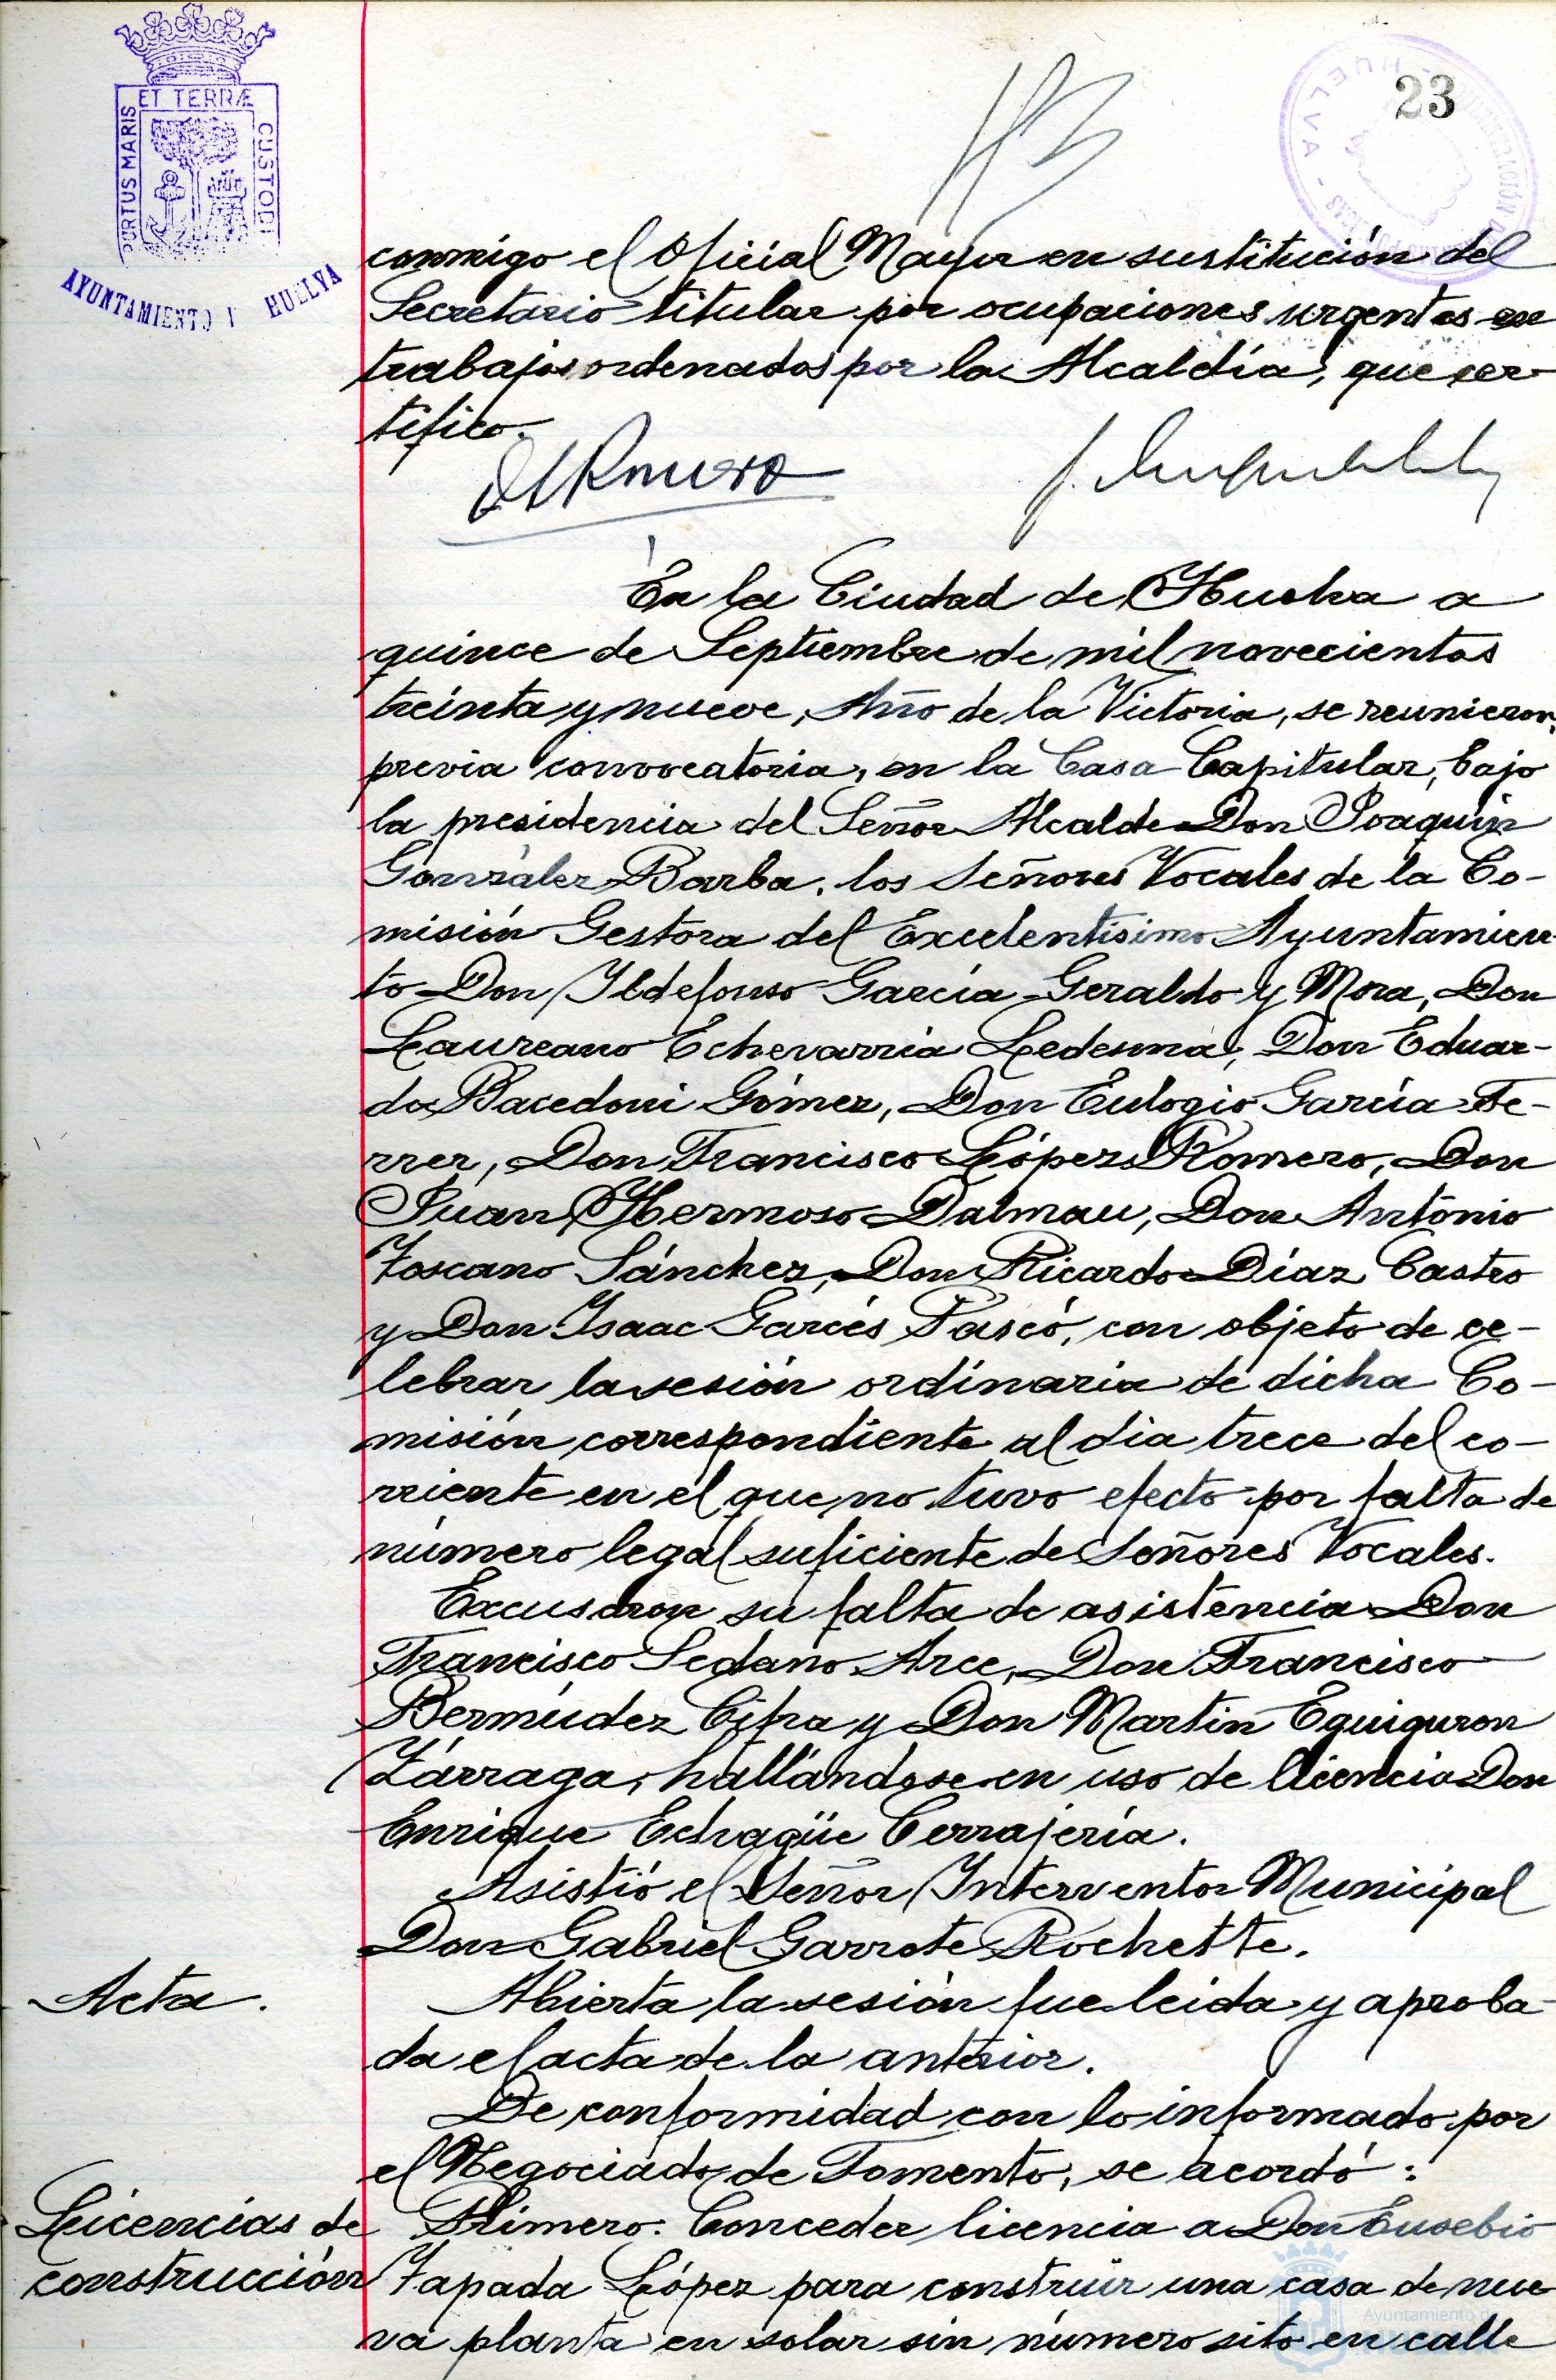 ET TERRÆ
PORTUS MARIS
CUSTODI
AYUNTAMIENTO HUELVA
23
HUELVA
conmigo el Oficial Mayor en sustitución del
Secretario titular por ocupaciones urgentes en
trabajos ordenados por la Alcaldía, que cer-
tifico.
En la Ciudad de Huelva a
quince de Septiembre de mil novecientos
treinta y nueve, Año de la Victoria, se reunieron,
previa convocatoria, en la Casa Capitular, bajo
la presidencia del Señor Alcalde Don Joaquín
González Barba, los Señores Vocales de la Co-
misión Gestora del Excelentísimo Ayuntamien-
to Don Ildefonso García Geraldo y Mora, Don
Laureano Echevarría Ledesma, Don Eduar-
do Bacedoni Gómez, Don Eulogio García Fe-
rrer, Don Francisco López Romero, Don
Juan Hermoso Dalmau, Don Antonio
Toscano Sánchez, Don Ricardo Díaz Castro
y Don Isaac Garcés Pascó, con objeto de ce-
lebrar la sesión ordinaria de dicha Co-
misión correspondiente al día trece del co-
rriente en el que no tuvo efecto por falta de
número legal suficiente de Señores Vocales.
Excusaron su falta de asistencia Don
Francisco Sedano Arce, Don Francisco
Bermúdez Cifra y Don Martín Eguiguron
Zárraga, hallándose en uso de licencia Don
Enrique Echagüe Cerrajería.
Asistió el Señor Interventor Municipal
Don Gabriel Garrote Rochette.
Acta.
Abierta la sesión fue leida y aproba-
da el acta de la anterior.
De conformidad con lo informado por
el Negociado de Fomento, se acordó:
Licencias de
construcción
Primero: Conceder licencia a Don Eusebio
Zapada López para construir una casa de nue-
va planta en solar sin número sito en calle
Ayuntamiento de
HUELVA